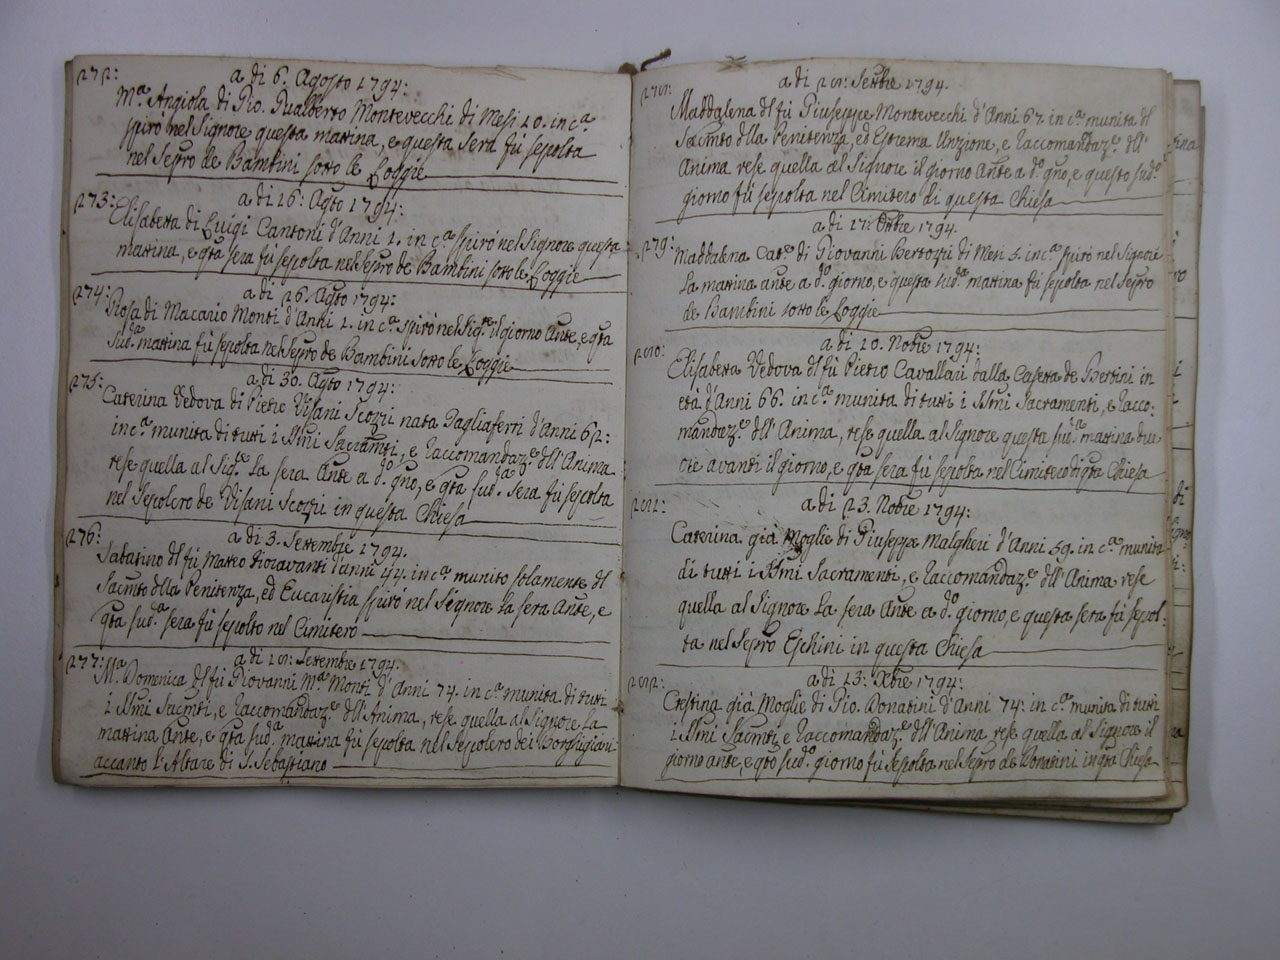 272:
a di 6. Agosto 1794:
M.ª Angiola di Gio. Gualberto Montevecchi di Mesi 10. in c.ª
spirò nel Signore questa mattina, e questa sera fù sepolta
nel Sepro de Bambini sotto le Loggie
273:
a di 16: Agto 1794:
Elisabetta di Luigi Cantoni d'Anni 1. in c.ª spirò nel Signore questa
mattina, e qta sera fù sepolta nel Sepro de Bambini sotto le Loggie
274:
a di 26. Agto 1794:
Rosa di Macario Monti d'Anni 1. in c.ª spirò nel Sig.re il giorno Ante, e qta
sud.ª mattina fù sepolta nel Sepro de Bambini sotto le Loggie
275:
a di 30. Agto 1794:
Caterina Vedova di Pietro Visani Scozzi nata Pagliaferri d'Anni 62:
in c.ª munita di tutti i SSmi Sacramti, e Raccomandaz.e dll'Anima
rese quella al Sig.re La sera Ante a d.º gno, e qta sud.ª sera fù sepolta
nel Sepolcro de Visani Scozzi in questa Chiesa
276:
a di 3. Settembre 1794.
Sabatino dl fù Matteo Fioravanti d'anni 44. in c.ª munito solamente dl
Sacmto dlla Penitenza, ed Eucaristia spirò nel Signore La sera Ante, e
qta sud.ª sera fù sepolto nel Cimitero
277:
a di 18: Settembre 1794:
M.ª Domenica dl fù Giovanni M.ª Monti d'Anni 74. in c.ª munita di tutti
i SSmi Sacmti, e Raccomandaz.e dll'Anima, rese quella al Signore La
mattina Ante, e qta sud.ª mattina fù sepolta nel Sepolcro dei Borsigiani
accanto l'Altare di S. Sebastiano
278:
a di 28: Settbre 1794.
Maddalena dl fù Giuseppe Montevecchi d'Anni 67. in c.ª munita dl
Sacmto dlla Penitenza, ed Estrema Unzione, e Raccomandaz.e dll'
Anima rese quella al Signore il giorno Ante a d.º gno, e questo sud.º
giorno fù sepolta nel Cimitero di questa Chiesa
279:
a di 17: Ottbre 1794.
Maddalena Cat.ª di Giovanni Bertozzi di Mesi 5. in c.ª spirò nel Signore
La mattina ante a d.º giorno, e questa sud.ª mattina fù sepolta nel Sepro
de Bambini sotto le Loggie
280:
a di 10. Nobre 1794:
Elisabetta Vedova dl fù Pietro Cavallari dalla Casetta de Bertini in
età d'Anni 66. in c.ª munita di tutti i SSmi Sacramenti, e Racco:
mandaz.e dll'Anima, rese quella al Signore questa sud.ª mattina due
ore avanti il giorno, e qta sera fù sepolta nel Cimitero di qta Chiesa
281:
a di 23. Nobre 1794:
Caterina già Moglie di Giuseppe Malgheri d'Anni 59. in c.ª munita
di tutti i SSmi Sacramenti, e Raccomandaz.e dll'Anima rese
quella al Signore La sera Ante a d.º giorno, e questa sera fù sepol:
ta nel Sepro Eschini in questa Chiesa
282:
a di 13: Xbre 1794:
Crestina già Moglie di Gio. Donatini d'Anni 74: in c.ª munita di tutti
i SSmi Sacmti e Raccomandaz.e dll'Anima rese quella al Signore il
giorno ante, e qto sud.º giorno fù sepolta nel Sepro de Donatini in qta Chiesa